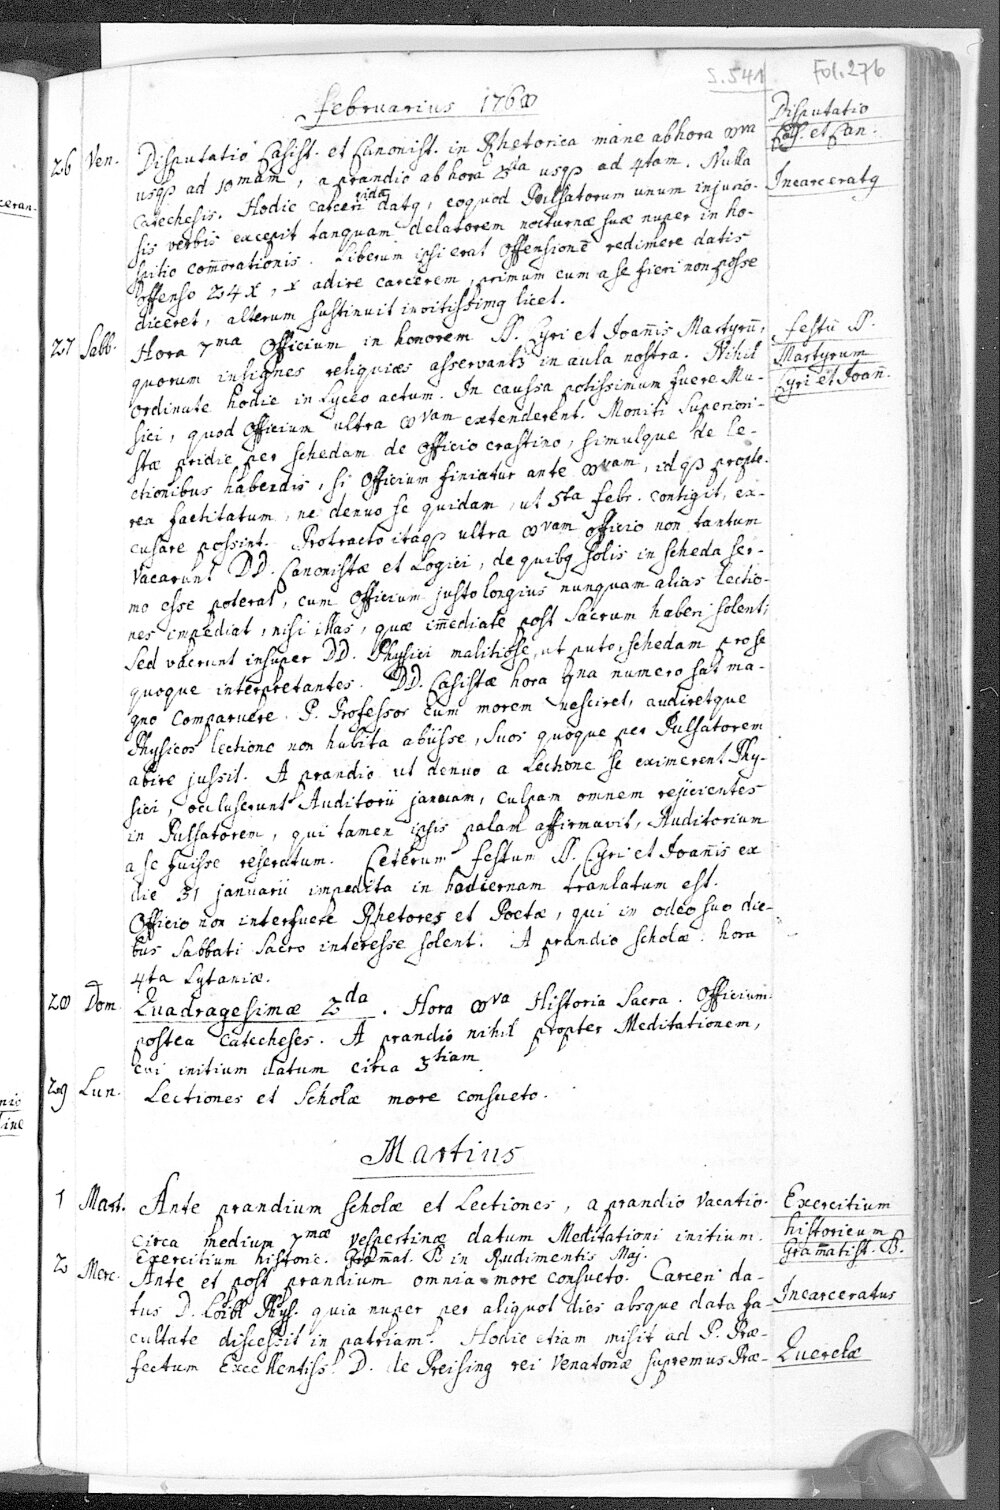 S. 541 Fol. 276
Februarius 1768
Disputatio
Cas. et Can.
26 Ven. Disputatio Casist. et Canonist. in Rhetorica mane ab hora 8va
usq₃ ad 10mam, a prandio ab hora 2da usq₃ ad 4tam. Nulla
Incarceratq
Catechesis. Hodie carceri datq, eoquod Pulsatorum unum injurio-
sis verbis excepit tanquam delatorem nocturnæ suæ nuper in ho-
spitio com̄orationis. Liberum ipsi erat offensionē redimere datis
offenso 24 x, x adire carcerem, primum cum a se fieri non posse
diceret, alterum sustinuit invitissimq licet.
27 Sabb. Hora 7ma Officium in honorem SS. Cyri et Joan̄is Martyrū,
Festū SS.
Martyrum
Cyri et Joan̄.
quorum insignes reliquiæ asservants in aula nostra. Nihil
ordinate hodie in Lyceo actum. In caussa potissimum fuere Mu-
sici, quod Officium ultra 8vam extenderent. Moniti Superiori-
stæ pridie per schedam de Officio crastino, simulque de le-
ctionibus habendis, si Officium finiatur ante 8vam, id q₃ propte-
rea factitatum, ne denuo se quidam, ut 5ta Febr. contigit, ex-
cusare possint. Protracto itaq₃ ultra 8vam officio non tantum
vacarunt DD. Canonistæ et Logici, de quibq solis in scheda ser-
mo esse poterat, cum Officium justo longius nunquam alias lectio-
nes impediat, nisi illas, quæ im̄ediate post Sacrum haberi solent;
sed vacarunt insuper DD. Physici malitiose, ut puto, schedam pro se
quoque interpretantes. DD. Casistæ hora 9na numero sat ma-
gno comparuere. P. Professor cum morem nesciret, audiretque
Physicos lectione non habita abiisse, suos quoque per Pulsatorem
abire jussit. A prandio ut denuo a Lectione se eximerent Phy-
sici, occluserunt Auditorii januam, culpam omnem rejicientes
in Pulsatorem, qui tamen ipsis palam affirmavit, Auditorium
a se fuisse reseratum. Ceterum festum SS. Cyri et Joan̄is ex
die 31 januarii impedita in hodiernam translatum est.
Officio non interfuere Rhetores et Poetæ, qui in odeo suo die-
bus Sabbati Sacro interesse solent. A prandio scholæ. hora
4ta Lytaniæ.
28 Dom. Quadragesimæ 2da. Hora 8va Historia Sacra. Officium.
postea Catecheses. A prandio nihil propter Meditationem,
cui initium datum circa 3tiam.
29 Lun. Lectiones et Scholæ more consueto.
Martius
1 Mart. Ante prandium scholæ et Lectiones, a prandio vacatio.
Exercitium
historicum
Gram̄atist. B.
circa medium 7mæ vespertinæ datum Meditationi initium.
Exercitium historic. Gram̄at. B. in Rudimentis Maj.
2 Merc. Ante et post prandium omnia more consueto. Carceri da-
Incarceratus
tus D. Loibl Phys. quia nuper per aliquot dies absque data fa-
cultate discessit in patriam. Hodie etiam misit ad P. Præ-
Querelæ
fectum Excellentiss. D. de Preising rei Venatoriæ supremus Præ-